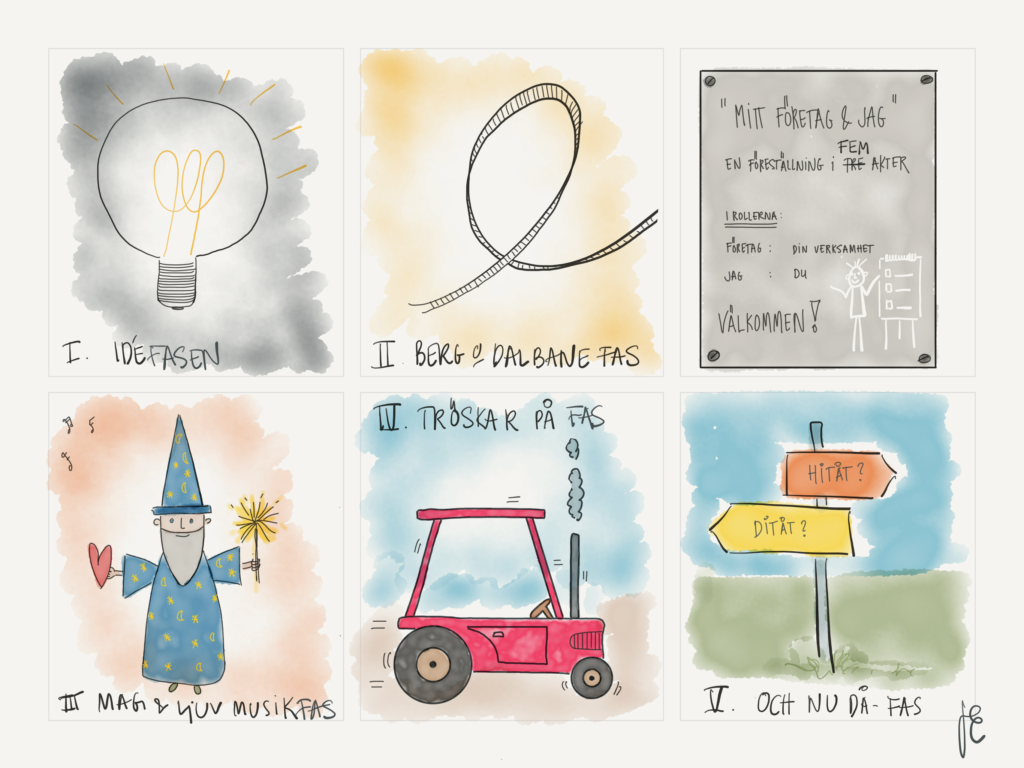 I. IDÉFASEN
II. BERG & DALBANE FAS
"MITT FÖRETAG & JAG"
FEM
EN FÖRESTÄLLNING I TRE AKTER
I ROLLERNA:
FÖRETAG: DIN VERKSAMHET
JAG: DU
VÄLKOMMEN!
III MAG & LJUV MUSIKFAS
IV. TRÖSKAR PÅ FAS
HITÅT?
DITÅT?
V. OCH NU DÅ-FAS
jE